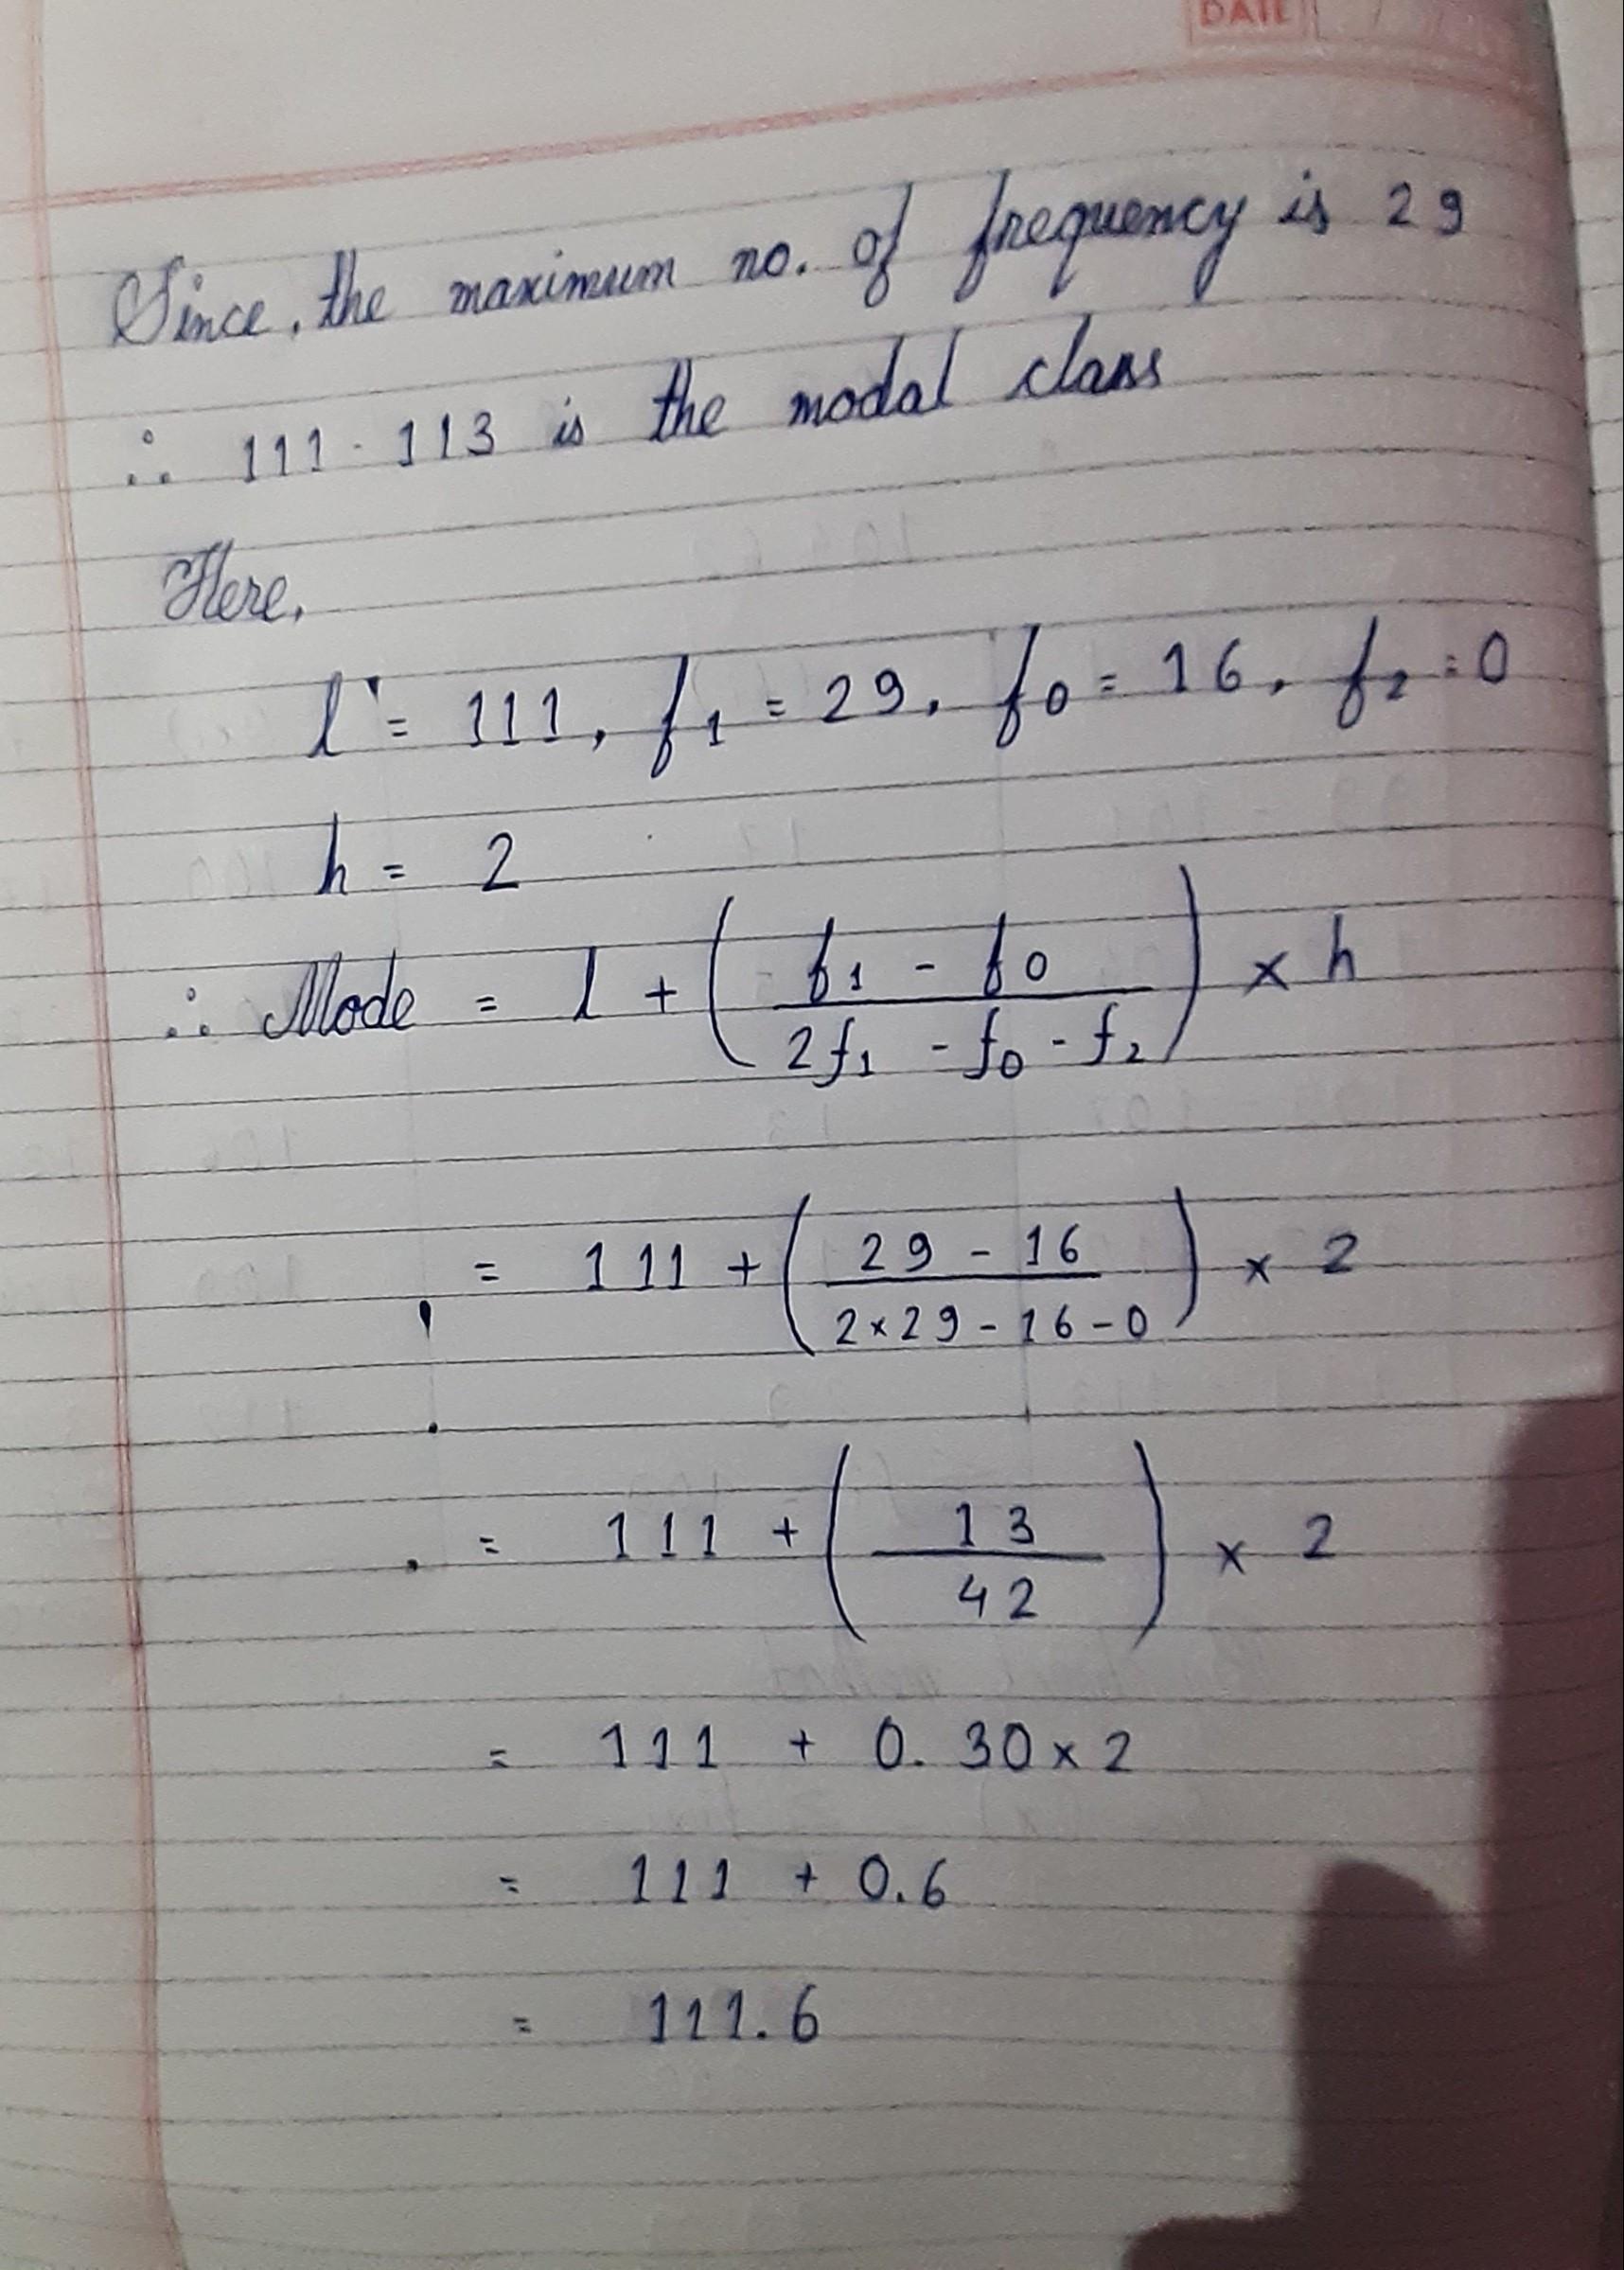 DATE
Since, the maximum no. of frequency is 29
∴ 111 - 113 is the modal class
Here,
l = 111, f₁ = 29, f₀ = 16, f₂ = 0
h = 2
∴ Mode = l + ( f₁ - f₀ / 2f₁ - f₀ - f₂ ) × h
= 111 + ( 29 - 16 / 2×29 - 16 - 0 ) × 2
= 111 + ( 13 / 42 ) × 2
= 111 + 0.30 × 2
= 111 + 0.6
= 111.6